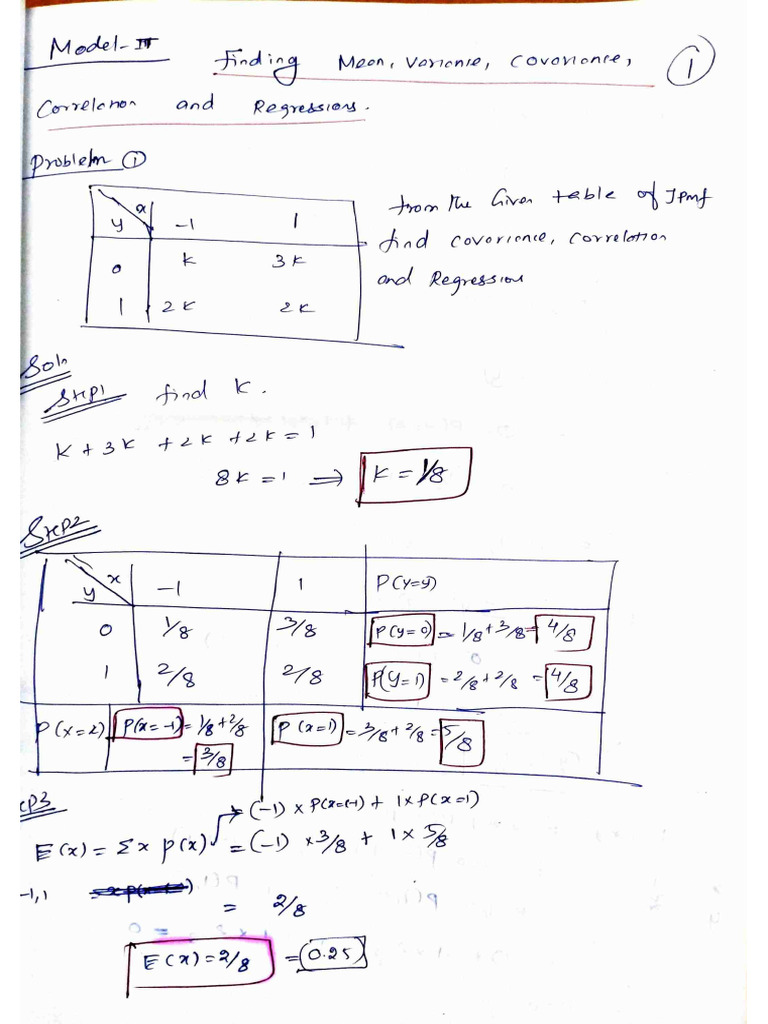 Model-III Finding Mean, Variance, Covariance, ①
Correlation and Regressions.
Problem ①
y x -1 1
0 K 3K
1 2K 2K
from the Given table of Jpmf
find covariance, correlation
and Regression
Soln
Step1 find K.
K + 3K + 2K + 2K = 1
8K = 1 ⇒ K = 1/8
Step2
y x -1 1 P(Y=y)
0 1/8 3/8 P(y=0) = 1/8 + 3/8 = 4/8
1 2/8 2/8 P(Y=1) = 2/8 + 2/8 = 4/8
P(X=x) P(x=-1) = 1/8 + 2/8 P(x=1) = 3/8 + 2/8 = 5/8
= 3/8
ep3 → (-1) × P(x=(-1) + 1 × P(x=1)
E(x) = Σx p(x) = (-1) × 3/8 + 1 × 5/8
-1, 1
= 2/8
E(x) = 2/8 = (0.25)